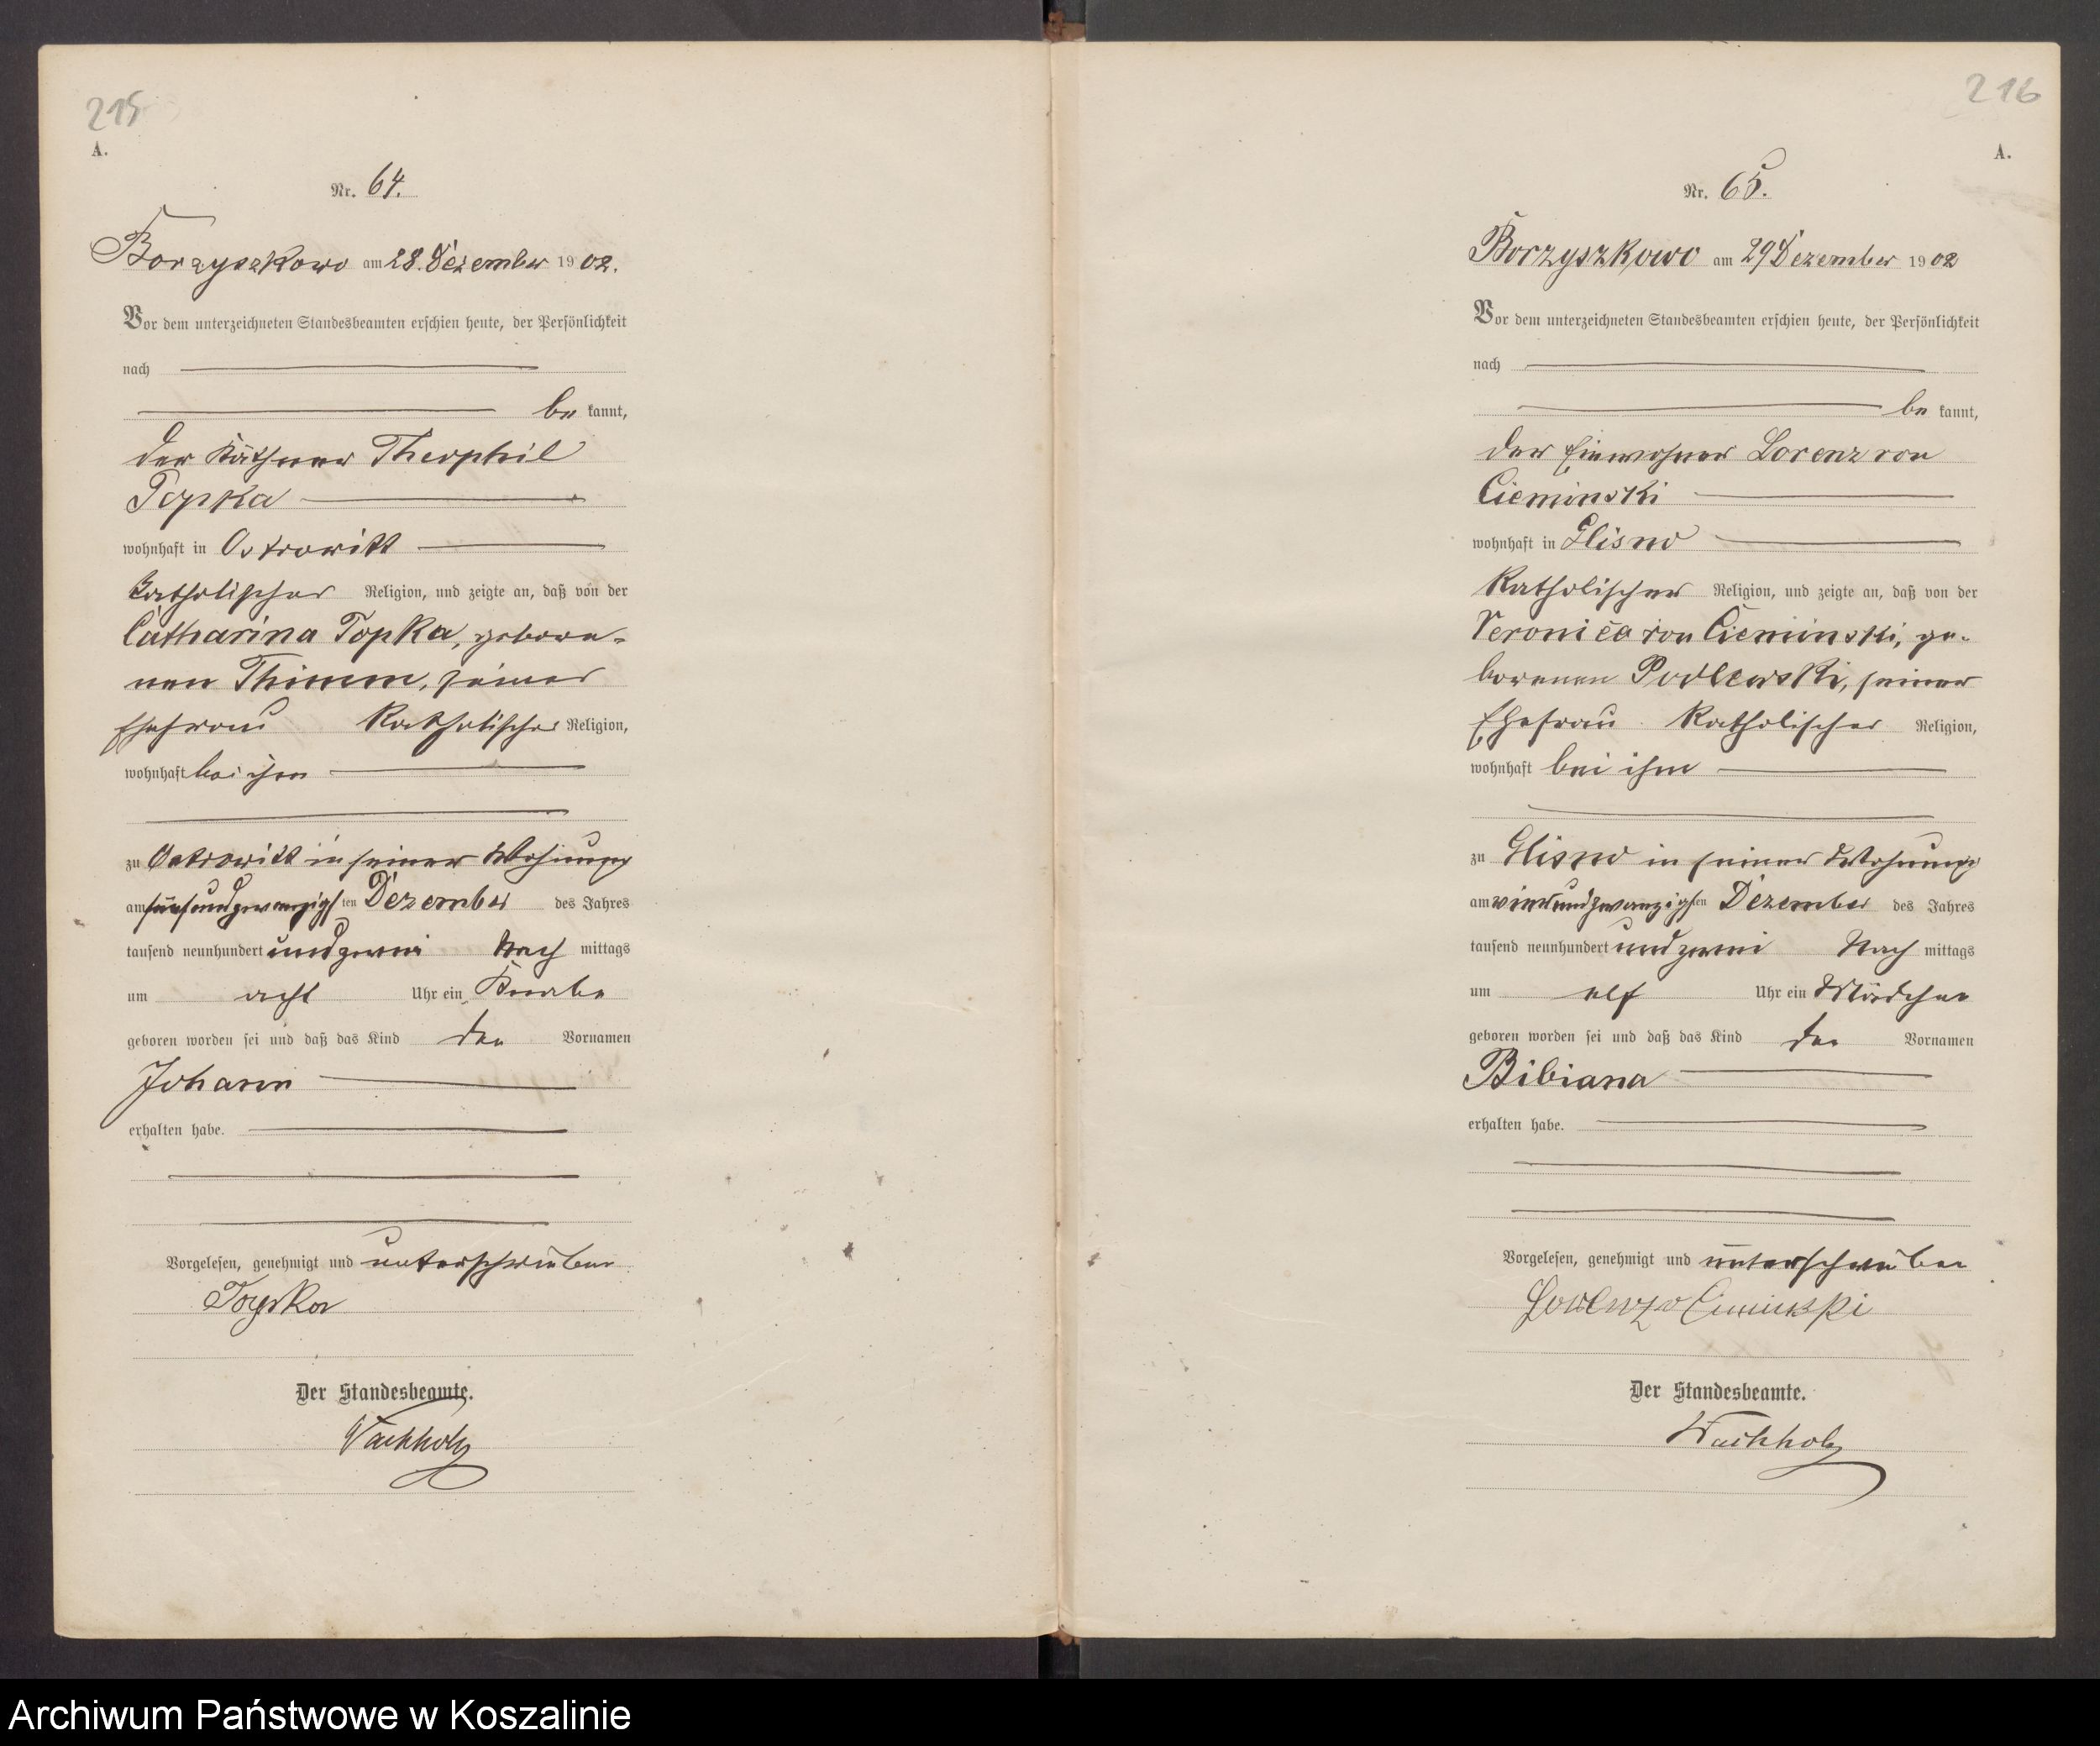 215
A.
Nr. 64.
Borzyszkowo am 28. Dezember 1902.
Vor dem unterzeichneten Standesbeamten erschien heute, der Persönlichkeit
nach
be kannt,
der Käthner Theophil
Topka
wohnhaft in Ostrowitt
katholischer Religion, und zeigte an, daß von der
Catharina Topka, gebore-
nen Thimm, seiner
Ehefrau katholischer Religion,
wohnhaft bei ihm
zu Ostrowitt in seiner Wohnung
am fünfundzwanzigsten Dezember des Jahres
tausend neunhundert und zwei Nach mittags
um acht Uhr ein Knabe
geboren worden sei und daß das Kind den Vornamen
Johann
erhalten habe.
Vorgelesen, genehmigt und unterschrieben
Topka
Der Standesbeamte.
Wachholz
216
A.
Nr. 65.
Borzyszkowo am 29 Dezember 1902
Vor dem unterzeichneten Standesbeamten erschien heute, der Persönlichkeit
nach
be kannt,
der Einwohner Lorenz von
Cieminski
wohnhaft in Glisno
katholischer Religion, und zeigte an, daß von der
Veronica von Cieminski, ge-
borenen Podlewski, seiner
Ehefrau katholischer Religion,
wohnhaft bei ihm
zu Glisno in seiner Wohnung
am vierundzwanzigsten Dezember des Jahres
tausend neunhundert und zwei Nach mittags
um elf Uhr ein Mädchen
geboren worden sei und daß das Kind den Vornamen
Bibiana
erhalten habe.
Vorgelesen, genehmigt und unterschrieben
Der Standesbeamte.
Wachholz
Archiwum Państwowe w Koszalinie